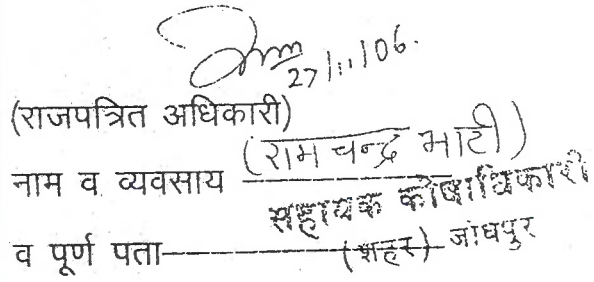 27/11/06.
(राजपत्रित अधिकारी)
नाम व व्यवसाय (रामचन्द्र भाटी)
सहायक कोषाधिकारी
व पूर्ण पता (शहर) जोधपुर